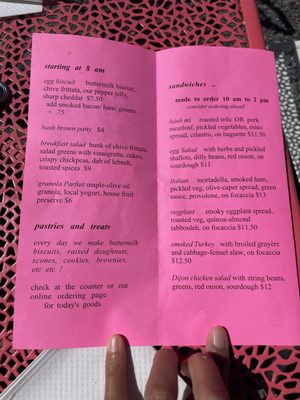 starting at 8 am
egg biscuit buttermilk biscuit,
chive frittata, our pepper jelly,
sharp cheddar $7.50
add smoked bacon/ ham/ greens
+ .75
hash brown patty $4
breakfast salad hunk of chive frittata,
salad greens with vinaigrette, cukes,
crispy chickpeas, dab of lebneh,
toasted spices $9
granola Parfait maple-olive oil
granola, local yogurt, house fruit
preserve $6
pastries and treats
every day we make buttermilk
biscuits, raised doughnuts,
scones, cookies, brownies,
etc etc !
check at the counter or our
online ordering page
for today's goods
sandwiches ..
made to order 10 am to 2 pm
consider ordering ahead!
bánh mì roasted tofu OR pork
meatloaf, pickled vegetables, miso
spread, cilantro, on baguette $11.50
egg Salad with herbs and pickled
shallots, dilly beans, red onion, on
sourdough $11
Italian mortadella, smoked ham,
pickled veg, olive-caper spread, green
sauce, provolone, on focaccia $13
vegplant smoky eggplant spread,
roasted veg, quinoa-almond
tabbouleh, on focaccia $11.50
smoked Turkey with broiled gruyère
and cabbage-fennel slaw, on focaccia
$12.50
Dijon chicken salad with string beans,
greens, red onion, sourdough $12